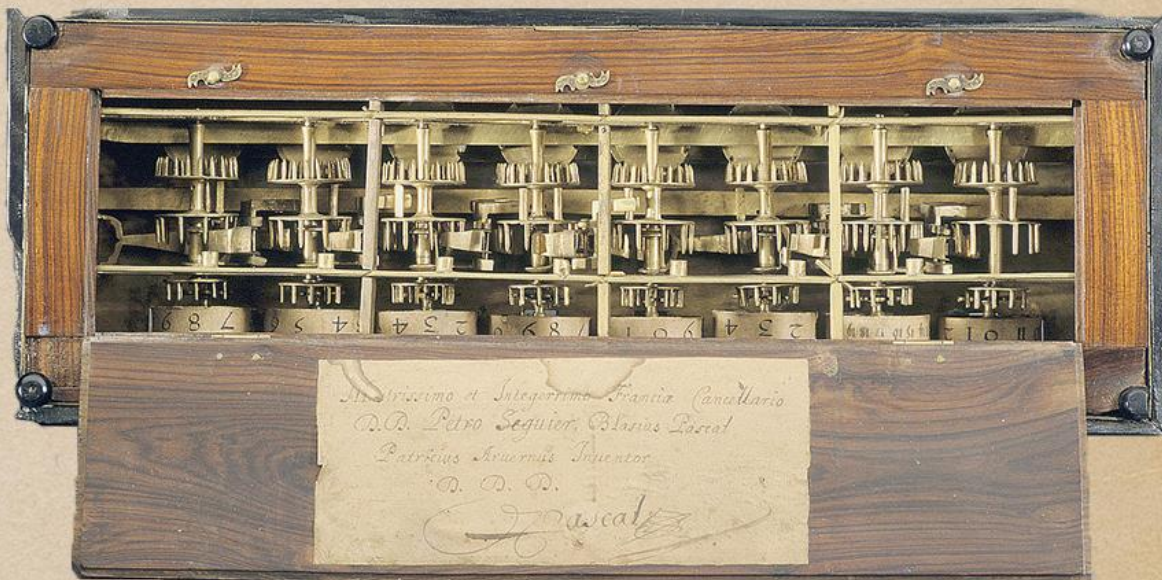 7 8 9 4 5 2 3 4 7 8 9 9 0 1 2 3 4 10 11
Illustrissimo et Integerrimo Franciæ Cancellario
D.D. Petro Seguier, Blasius Pascal
Patricius Arvernus Inventor.
D. D. D.
Pascal